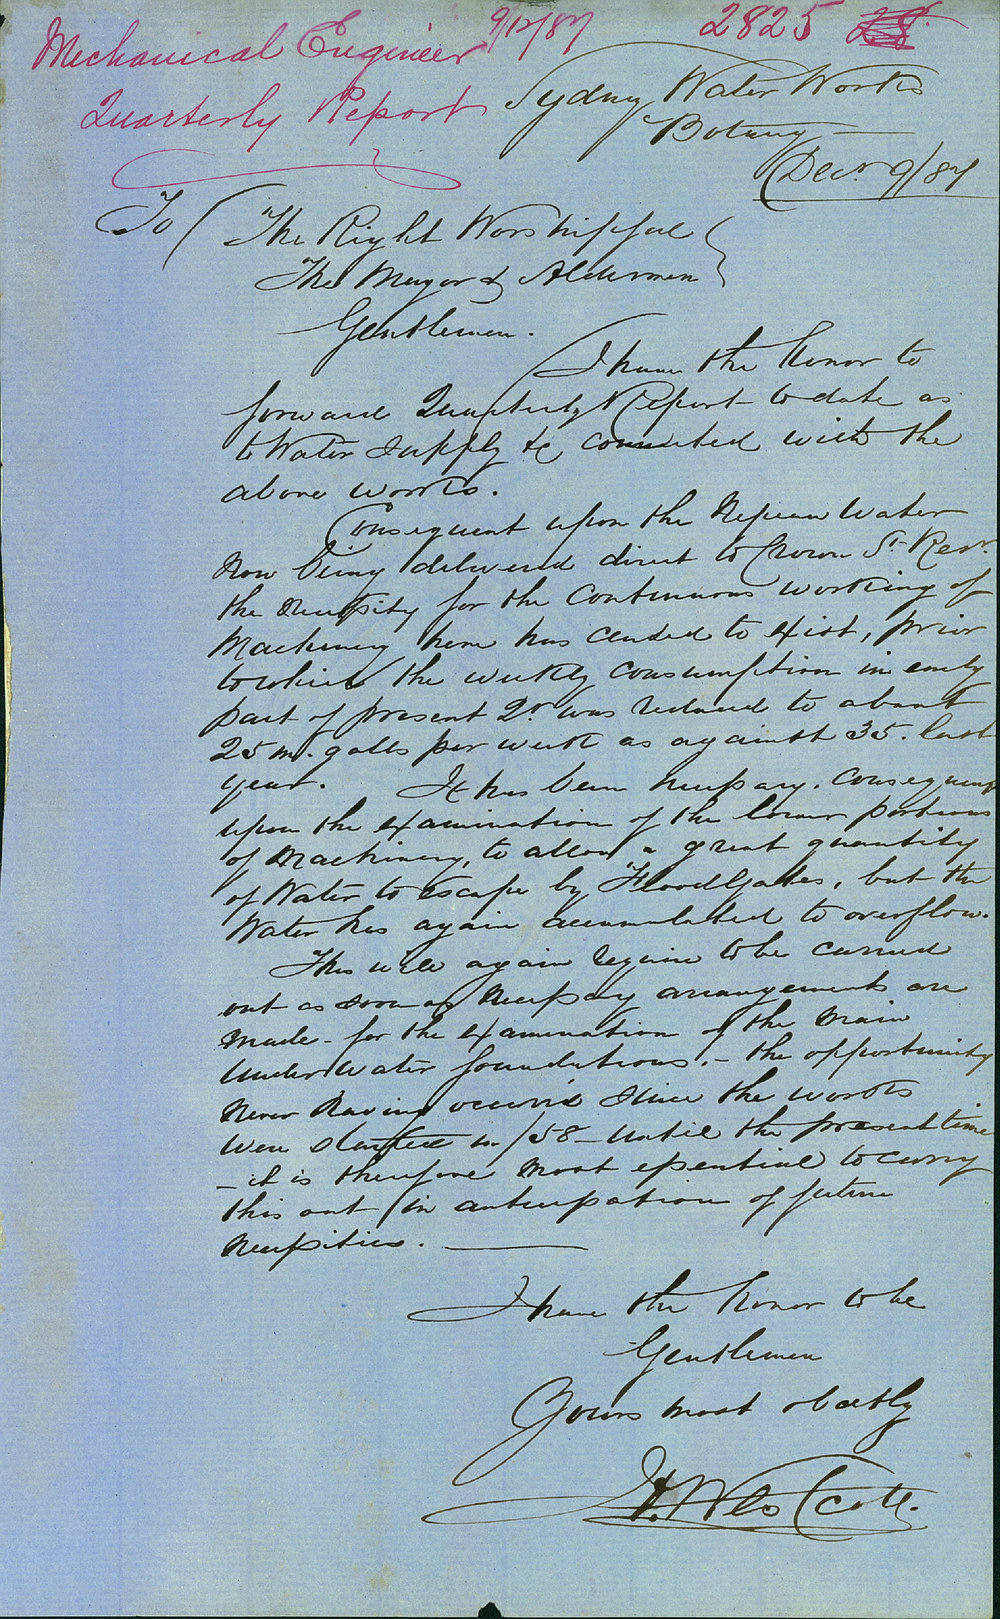 Mechanical Engineer 9/12/87 2825 28
Quarterly Report
Sydney Water Works
Botany
Decr. 9/87
To The Right Worshipful
The Mayor & Aldermen
Gentlemen.
I have the honor to
forward Quarterly Report to date as
to Water Supply &c connected with the
above works.
Consequent upon the Nepean Water
Now being delivered direct to Crown St. Resr.
the necessity for the continuous working of
Machinery here has ceased to exist, prior
to which the weekly consumption in early
part of present Qr. was reduced to about
25 m. galls per week as against 35. last
year. It has been necessary, consequent
upon the examination of the lower portions
of Machinery, to allow a great quantity
of Water to escape by Flood Gates, but the
Water has again accumulated to overflow.
This will again require to be carried
out as soon as necessary arrangements are
made - for the examination of the main
under water foundations, - the opportunity
never having occurred since the works
were started in /58 - until the present time
- it is therefore most essential to carry
this out in anticipation of future
necessities.
I have the honor to be
Gentlemen
Yours most obdtly
Westcott.